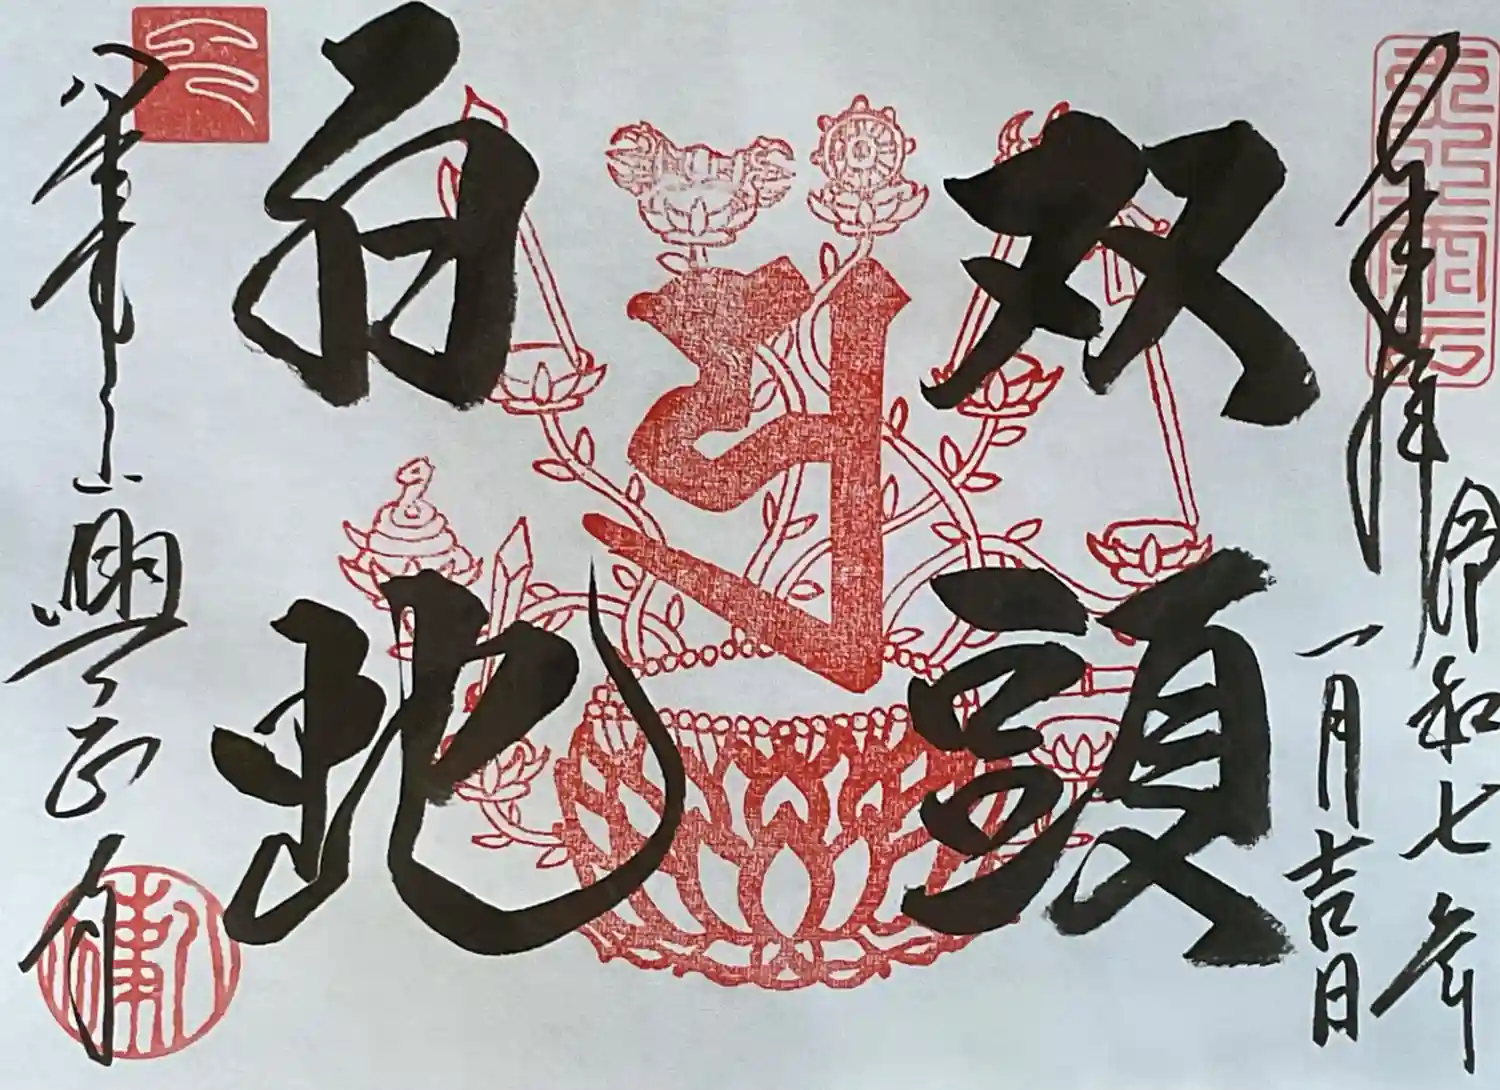 奉拝
令和七年
一月吉日
双頭
白虵
八事山
興正寺